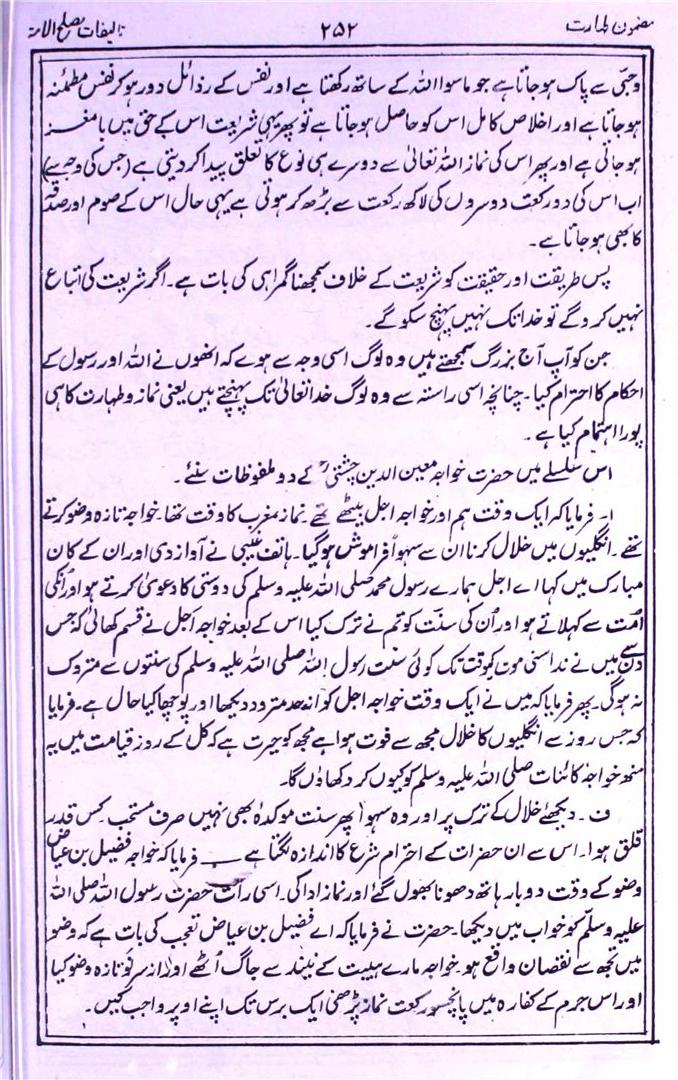 مضمون طہارت ۲۵۲ تالیفات مصلح الامۃ
وحبّی سے پاک ہوجاتا ہے جو ماسوا اللہ کے ساتھ رکھتا ہے اور نفس کے رذائل دور ہوکر نفس مطمئنہ
ہوجاتا ہے اور اخلاص کامل اس کو حاصل ہوجاتا ہے تو پھر یہی شریعت اس کے حق میں بامغز
ہوجاتی ہے اور پھر اس کی نماز اللہ تعالیٰ سے دوسرے ہی نوع کا تعلق پیدا کر دیتی ہے (جس کی وجہ سے)
اب اس کی دو رکعت دوسروں کی لاکھ رکعت سے بڑھ کر ہوتی ہے یہی حال اس کے صوم اور صدقہ
کا بھی ہوجاتا ہے۔
پس طریقت اور حقیقت کو شریعت کے خلاف سمجھنا گمراہی کی بات ہے۔ اگر شریعت کی اتباع
نہیں کروگے تو خدا تک نہیں پہنچ سکوگے۔
جن کو آپ آج بزرگ سمجھتے ہیں وہ لوگ اسی وجہ سے ہوے کہ انھوں نے اللہ اور رسول کے
احکام کا احترام کیا۔ چنانچہ اسی راستہ سے وہ لوگ خدا تعالیٰ تک پہنچتے ہیں یعنی نماز و طہارت کا ہی
پورا اہتمام کیا ہے۔
اس سلسلے میں حضرت خواجہ معین الدین چشتیؒ کے دو ملفوظات سنئے۔
۱۔ فرمایا کہ ایک وقت ہم اور خواجہ اجل بیٹھے تھے۔ نماز مغرب کا وقت تھا۔ خواجہ تازہ وضو کرتے
تھے۔ انگلیوں میں خلال کرنا ان سے سہواً فراموش ہوگیا۔ ہاتف غیبی نے آواز دی اور ان کے کان
مبارک میں کہا اے اجل ہمارے رسول محمد صلی اللہ علیہ وسلم کی دوستی کا دعویٰ کرتے ہو اور انکی
امت سے کہلاتے ہو اور اُن کی سنّت کو تم نے ترک کیا اس کے بعد خواجہ اجل نے قسم کھائی کہ جس
دن سے میں نے ندا سنی موت کے وقت تک کوئی سنت رسول اللہ صلی اللہ علیہ وسلم کی سنتوں سے متروک
نہ ہوگی۔ پھر فرمایا کہ میں نے ایک وقت خواجہ اجل کو از حد متردد دیکھا اور پوچھا کیا حال ہے۔ فرمایا
کہ جس روز سے انگلیوں کا خلال مجھ سے فوت ہوا ہے مجھ کو حیرت ہے کہ کل کے روز قیامت میں یہ
منھ خواجہ کائنات صلی اللہ علیہ وسلم کو کیوں کر دکھاؤں گا۔
ف۔ دیکھئے خلال کے ترک پر اور وہ سہواً پھر سنت موکدہ بھی نہیں صرف مستحب۔ کس قدر
قلق ہوا۔ اس سے ان حضرات کے احترام شرع کا اندازہ لگتا ہے ــــ فرمایا کہ خواجہ فضیل بن عیاض
وضو کے وقت دوبار ہاتھ دھونا بھول گئے اور نماز ادا کی۔ اسی رات حضرت رسول اللہ صلی اللہ
علیہ وسلم کو خواب میں دیکھا۔ حضرت نے فرمایا کہ اے فضیل بن عیاض تعجب کی بات ہے کہ وضو
میں تجھ سے نقصان واقع ہو۔ خواجہ مارے ہیبت کے نیند سے جاگ اُٹھے اور از سر نو تازہ وضو کیا
اور اس جرم کے کفارہ میں پانچسو رکعت نماز پڑھنی ایک برس تک اپنے اوپر واجب کیں۔